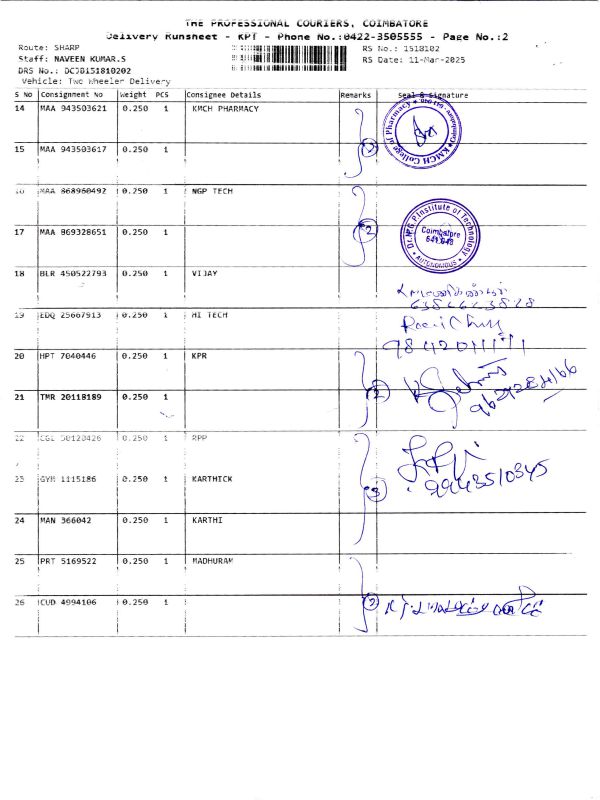 THE PROFESSIONAL COURIERS, COIMBATORE
Delivery Runsheet - KPT - Phone No.:0422-3505555 - Page No.:2
Route: SHARP
RS No.: 1518102
Staff: NAVEEN KUMAR.S
RS Date: 11-Mar-2025
DRS No.: DCJB151810202
Vehicle: Two Wheeler Delivery
S NO Consignment No Weight PCS Consignee Details Remarks Seal & Signature
14 MAA 943503621 0.250 1 KMCH PHARMACY
KMCH College of Pharmacy
15 MAA 943503617 0.250 1
16 MAA 868960492 0.250 1 NGP TECH
2
Dr.N.G.P.Institute of Technology
Coimbatore
641 048
AUTONOMOUS
17 MAA 869328651 0.250 1
18 BLR 450522793 0.250 1 VIJAY
19 EDQ 25667913 0.250 1 HI TECH
20 HPT 7040446 0.250 1 KPR
2
21 TMR 20118189 0.250 1
22 CGL 50120426 0.250 1 RPP
9943510345
23 GYM 1115186 0.250 1 KARTHICK
3
24 MAN 366042 0.250 1 KARTHI
25 PRT 5169522 0.250 1 MADHURAM
26 CUD 4994106 0.250 1
2